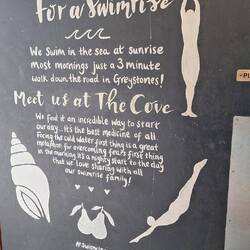 For a Swimrise
We Swim in the sea at sunrise
most mornings just a 3 minute
walk down the road in Greystones!
Meet us at The Cove
We find it an incredible way to start
our day... It's the best medicine of all.
Facing the cold water first thing is a great
metaphor for overcoming fears first thing
in the morning. It's a mighty start to the day
that we love sharing with all
our swimrise family!